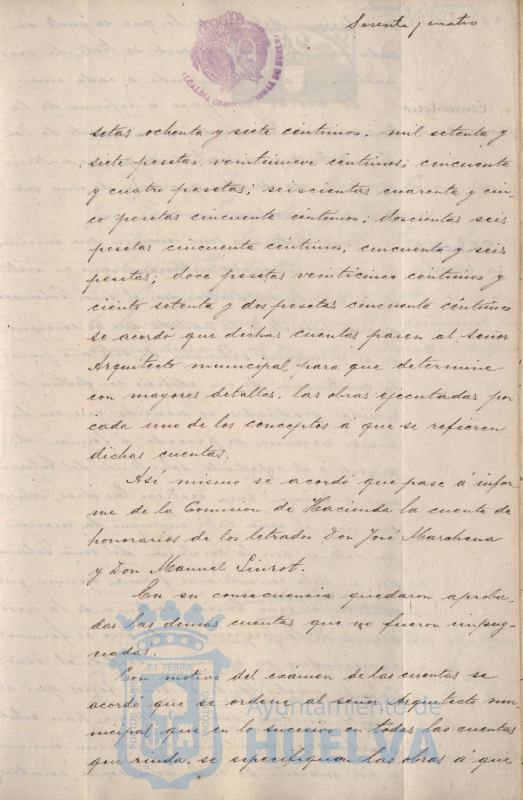 Sesenta y cuatro
ALCALDIA CONSTITUCIONAL DE HUELVA
setas ochenta y siete céntimos; mil setenta y
siete pesetas veintinueve céntimos; cincuenta
y cuatro pesetas; seiscientas cuarenta y cin-
co pesetas cincuenta céntimos; doscientas seis
pesetas cincuenta céntimos; cincuenta y seis
pesetas; doce pesetas veinticinco céntimos y
ciento setenta y dos pesetas cincuenta céntimos
se acordó que dichas cuentas pasen al Señor
Arquitecto municipal para que determine
con mayores detalles, las obras ejecutadas por
cada uno de los conceptos á que se refieren
dichas cuentas.
Así mismo se acordó que pase á infor-
me de la Comision de Hacienda la cuenta de
honorarios de los letrados Don José Marchena
y Don Manuel Siurot.
En su consecuencia quedaron aproba-
das las demás cuentas que no fueron impug-
nadas.
Con motivo del exámen de las cuentas se
acordó que se ordene al señor Arquitecto mu-
nicipal que en lo sucesivo en todas las cuentas
que rinda, se especifiquen las obras á que
PORTUS MARIS ET TERRAE CUSTODIA
Ayuntamiento de
HUELVA